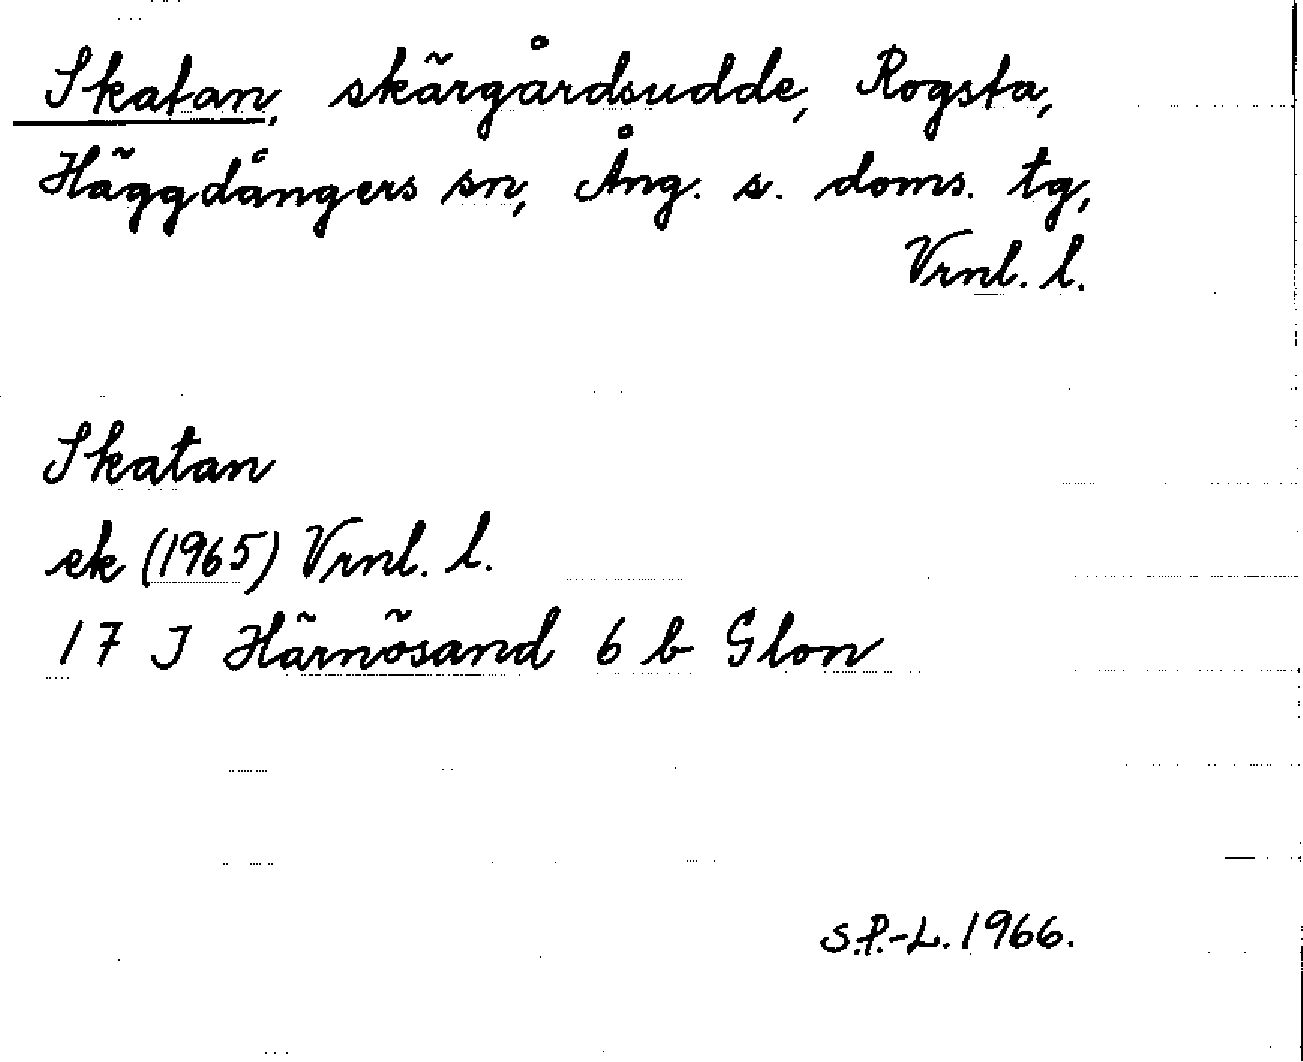 Skatan, skärgårdsudde, Rogsta,
Häggdångers sn, Ång. s. doms. tg,
Vrnl. l.
Skatan
ek (1965) Vrnl. l.
17 J Härnösand 6 b Glon
S.P.-L. 1966.